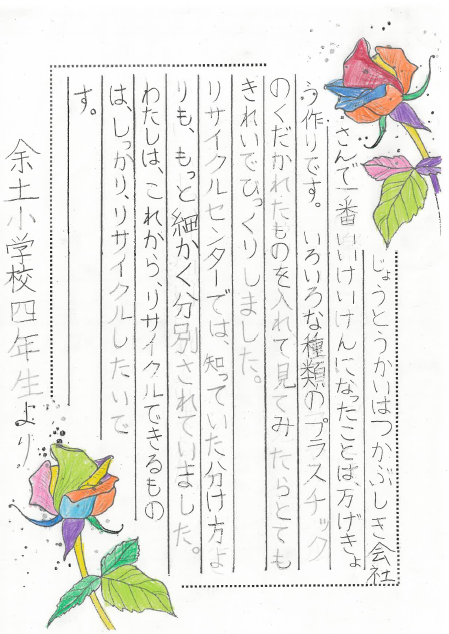 じょうとうかいはつかぶしき会社
さんで一番いいけいけんになったことは、万げきょ
う作りです。いろいろな種類のプラスチック
のくだかれたものを入れて見てみたらとても
きれいでびっくりしました。
リサイクルセンターでは、知っていた分け方よ
りも、もっと細かく分別されていました。
わたしは、これから、リサイクルできるもの
は、しっかり、リサイクルしたいで
す。
余土小学校四年生より